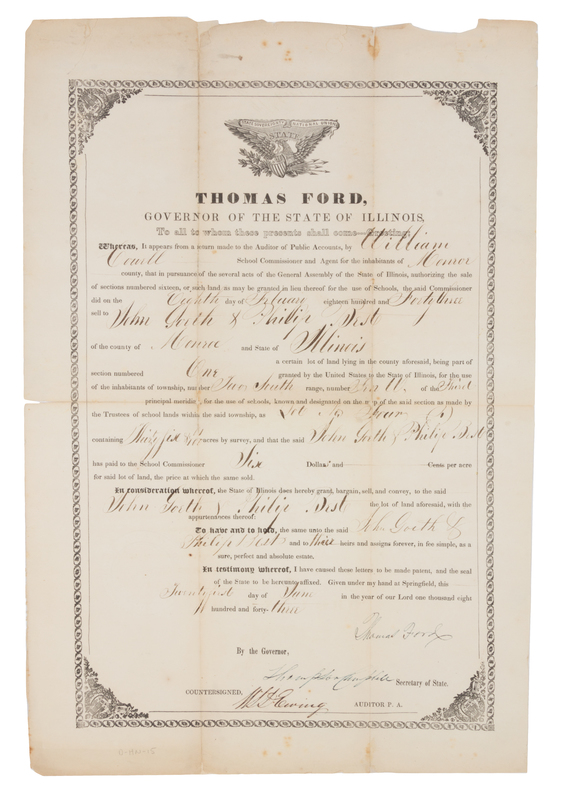 STATE SOVEREIGNTY NATIONAL UNION
STATE
THOMAS FORD,
GOVERNOR OF THE STATE OF ILLINOIS,
To all to whom these presents shall come—Greeting:
Whereas, It appears from a return made to the Auditor of Public Accounts, by William
Covell School Commissioner and Agent for the inhabitants of Monroe
county, that in pursuance of the several acts of the General Assembly of the State of Illinois, authorizing the sale
of sections numbered sixteen, or such land as may be granted in lieu thereof for the use of Schools, the said Commissioner
did on the Eighth day of February eighteen hundred and Forty three
sell to John Goeth & Philip Best
of the county of Monroe and State of Illinois
a certain lot of land lying in the county aforesaid, being part of
section numbered One granted by the United States to the State of Illinois, for the use
of the inhabitants of township, number Two South range, number of the Third
principal meridian for the use of schools, known and designated on the map of the said section as made by
the Trustees of school lands within the said township, as Lot No Four (4)
containing acres by survey, and that the said John Goeth & Philip Best
has paid to the School Commissioner Six Dollars and Cents per acre
for said lot of land, the price at which the same sold.
In consideration whereof, the State of Illinois does hereby grant, bargain, sell, and convey, to the said
John Goeth & Philip Best the lot of land aforesaid, with the
appurtenances thereof:
To have and to hold, the same unto the said John Goeth &
Philip Best and to their heirs and assigns forever, in fee simple, as a
sure, perfect and absolute estate.
In testimony whereof, I have caused these letters to be made patent, and the seal
of the State to be hereunto affixed. Given under my hand at Springfield, this
day of June in the year of our Lord one thousand eight
hundred and forty-three
Thomas Ford
By the Governor,
Thompson Campbell Secretary of State.
COUNTERSIGNED,
W L D Ewing AUDITOR P. A.